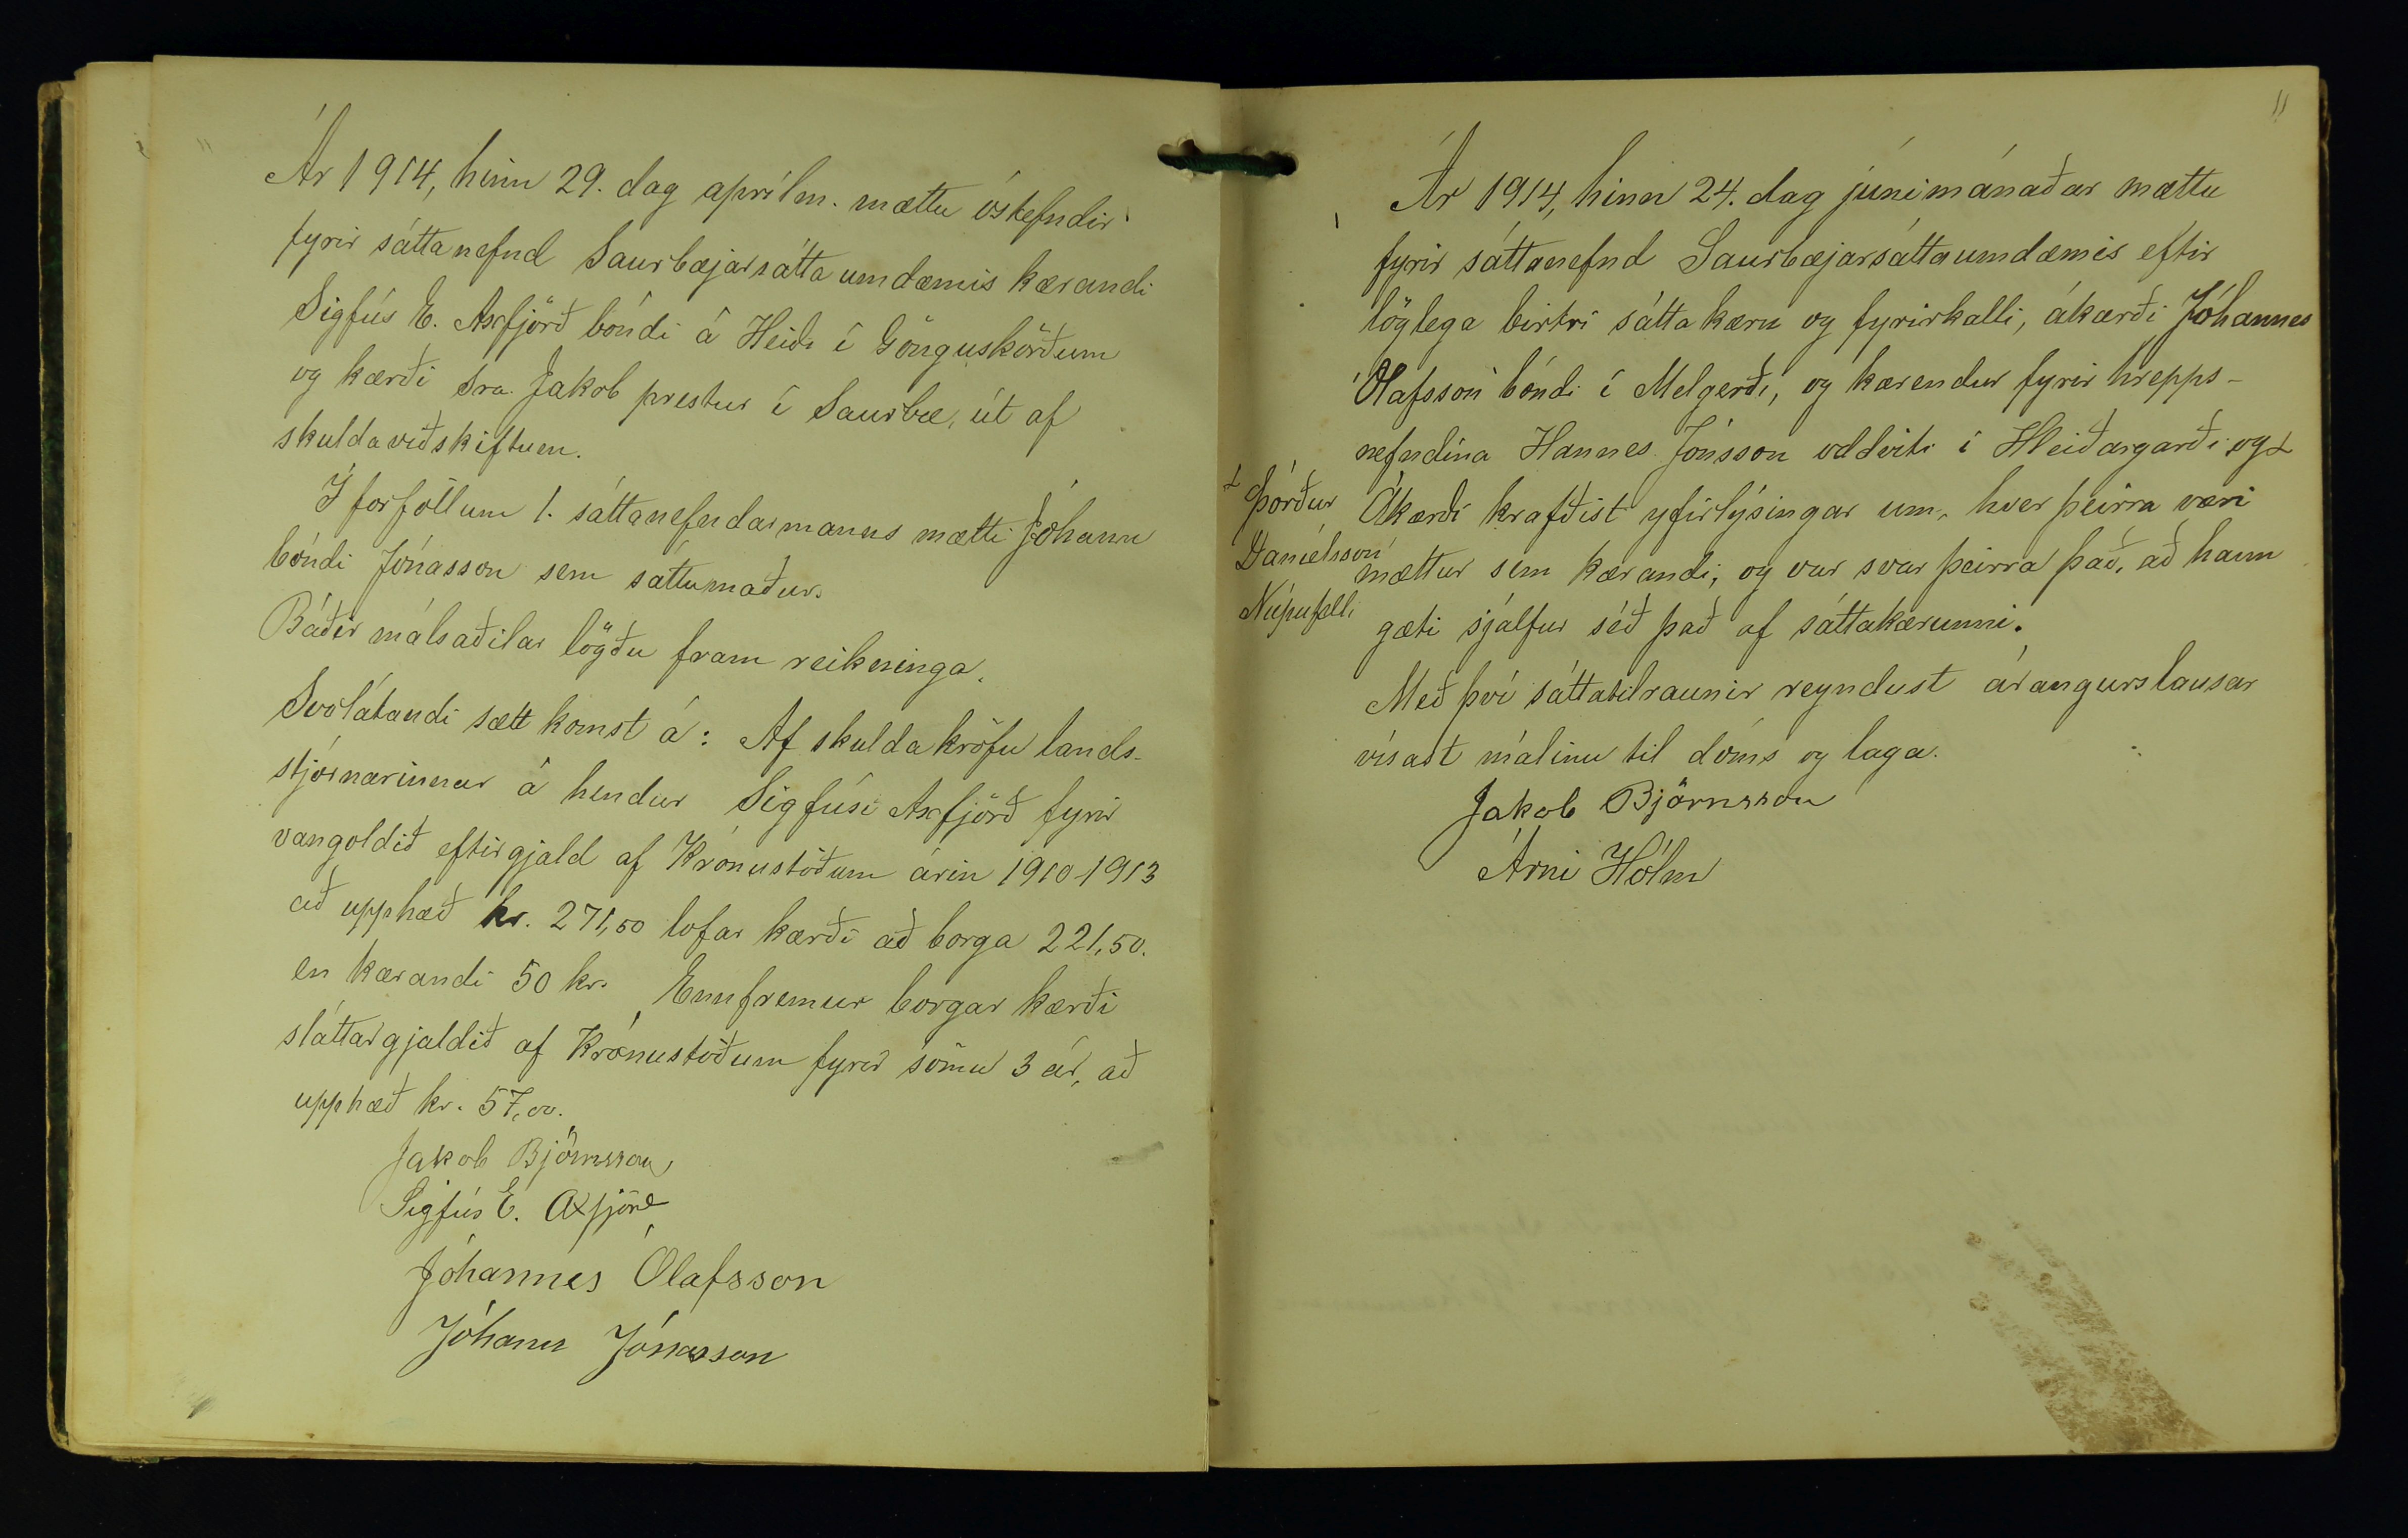 Ár 1914, hinn 29. dag aprílm. mættu óstefndir
fyrir sáttanefnd Saurbæjarsáttaumdæmis kærandi
Sigfús E. Axfjörð bóndi á Heiði í Gönguskörðum
og kærði sra. Jakob prestur í Saurbæ, út af
skuldaviðskiftum.
Í forföllum 1. sáttanefndarmanns mætti Jóhann
bóndi Jónasson sem sáttumaður.
Báðir málsaðilar lögðu fram reikninga.
Svolátandi sætt komst á: Af skuldakröfu lands-
stjórnarinnar á hendur Sigfúsi Axfjörð fyrir
vangoldið eftirgjald af Krónustöðum árin 1910-1913
að upphæð kr. 271,50 lofar kærði að borga 221,50.
en kærandi 50 kr. Ennfremur borgar kærði
sláttargjaldið af Krónustöðum fyrir sömu 3 ár, að
upphæð kr. 57,00.
Jakob Björnsson
Sigfús E. Axfjörð
Jóhannes Ólafsson
Jóhann Jónasson
11
Ár 1914, hinn 24. dag júnímánaðar mættu
fyrir sáttanefnd Saurbæjarsáttaumdæmis eftir
löglega birtri sáttakæru og fyrirkalli, ákærði Jóhannes
Ólafsson bóndi í Melgerði, og kærendur fyrir hrepps-
nefndina Hannes Jónsson oddviti í Hleiðargarði og
Þórður
Daníelsson
Núpufelli
Ákærði krafðist yfirlýsingar um, hver þeirra væri
mættur sem kærandi, og var svar þeirra það, að hann
gæti sjálfur séð það af sáttakærunni.
Með því sáttatilraunir reyndust árangurslausar
vísast málinu til dóms og laga.
Jakob Björnsson
Árni Hólm